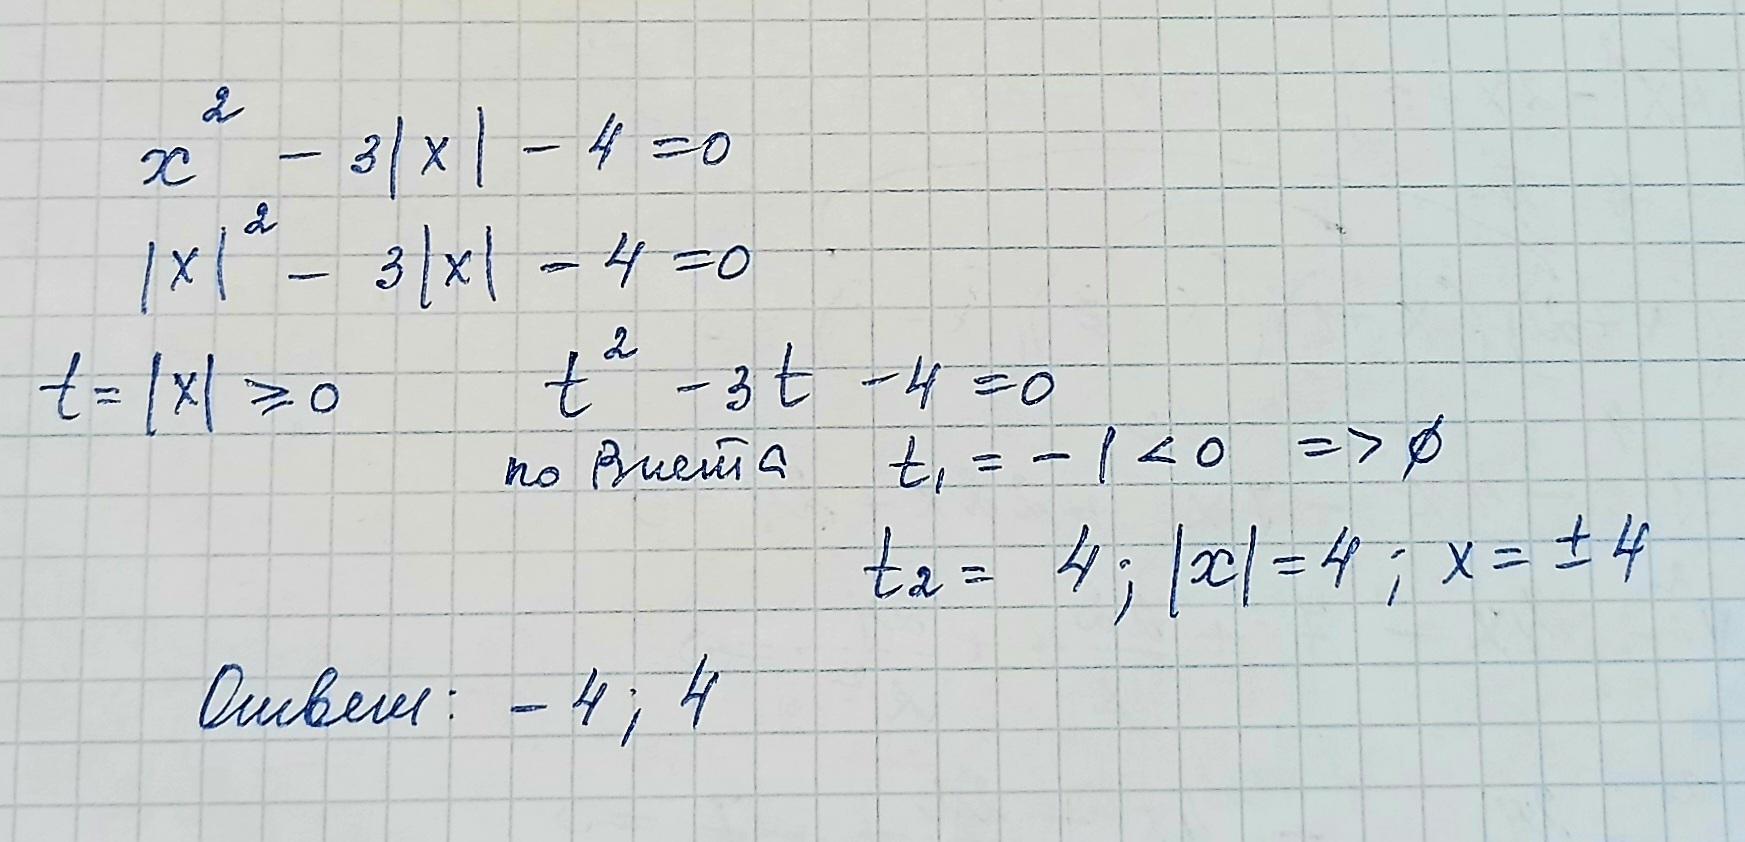 x² - 3|x| - 4 = 0
|x|² - 3|x| - 4 = 0
t = |x| ⩾ 0 t² - 3t - 4 = 0
по Виета t₁ = -1 < 0 => ∅
t₂ = 4; |x| = 4; x = ± 4
Ответ: -4; 4